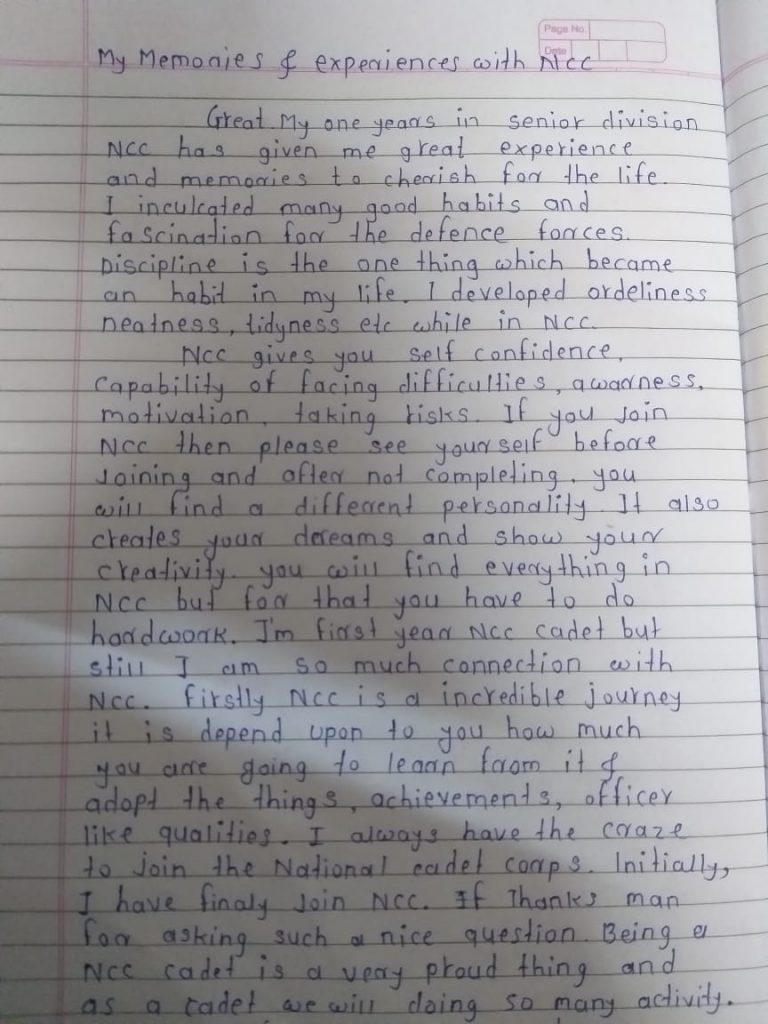 Page No.
Date
My Memories & experiences with NCC
Great My one years in senior division
NCC has given me great experience
and memories to cherish for the life.
I inculcated many good habits and
fascination for the defence forces.
Discipline is the one thing which became
an habit in my life. I developed ordeliness
neatness, tidyness etc while in NCC.
NCC gives you self confidence,
capability of facing difficulties, awarness,
motivation, taking risks. If you join
NCC then please see yourself before
joining and after not completing. you
will find a different personality. It also
creates your dereams and show your
creativity. you will find everything in
NCC but for that you have to do
hardwork. I'm first year NCC cadet but
still I am so much connection with
NCC. firstly NCC is a incredible journey
it is depend upon to you how much
you are going to learn from it &
adopt the things, achievements, officer
like qualities. I always have the craze
to join the National cadet corps. Initially,
I have finaly join NCC. If Thanks man
for asking such a nice question. Being a
NCC cadet is a very proud thing and
as a cadet we will doing so many activity.